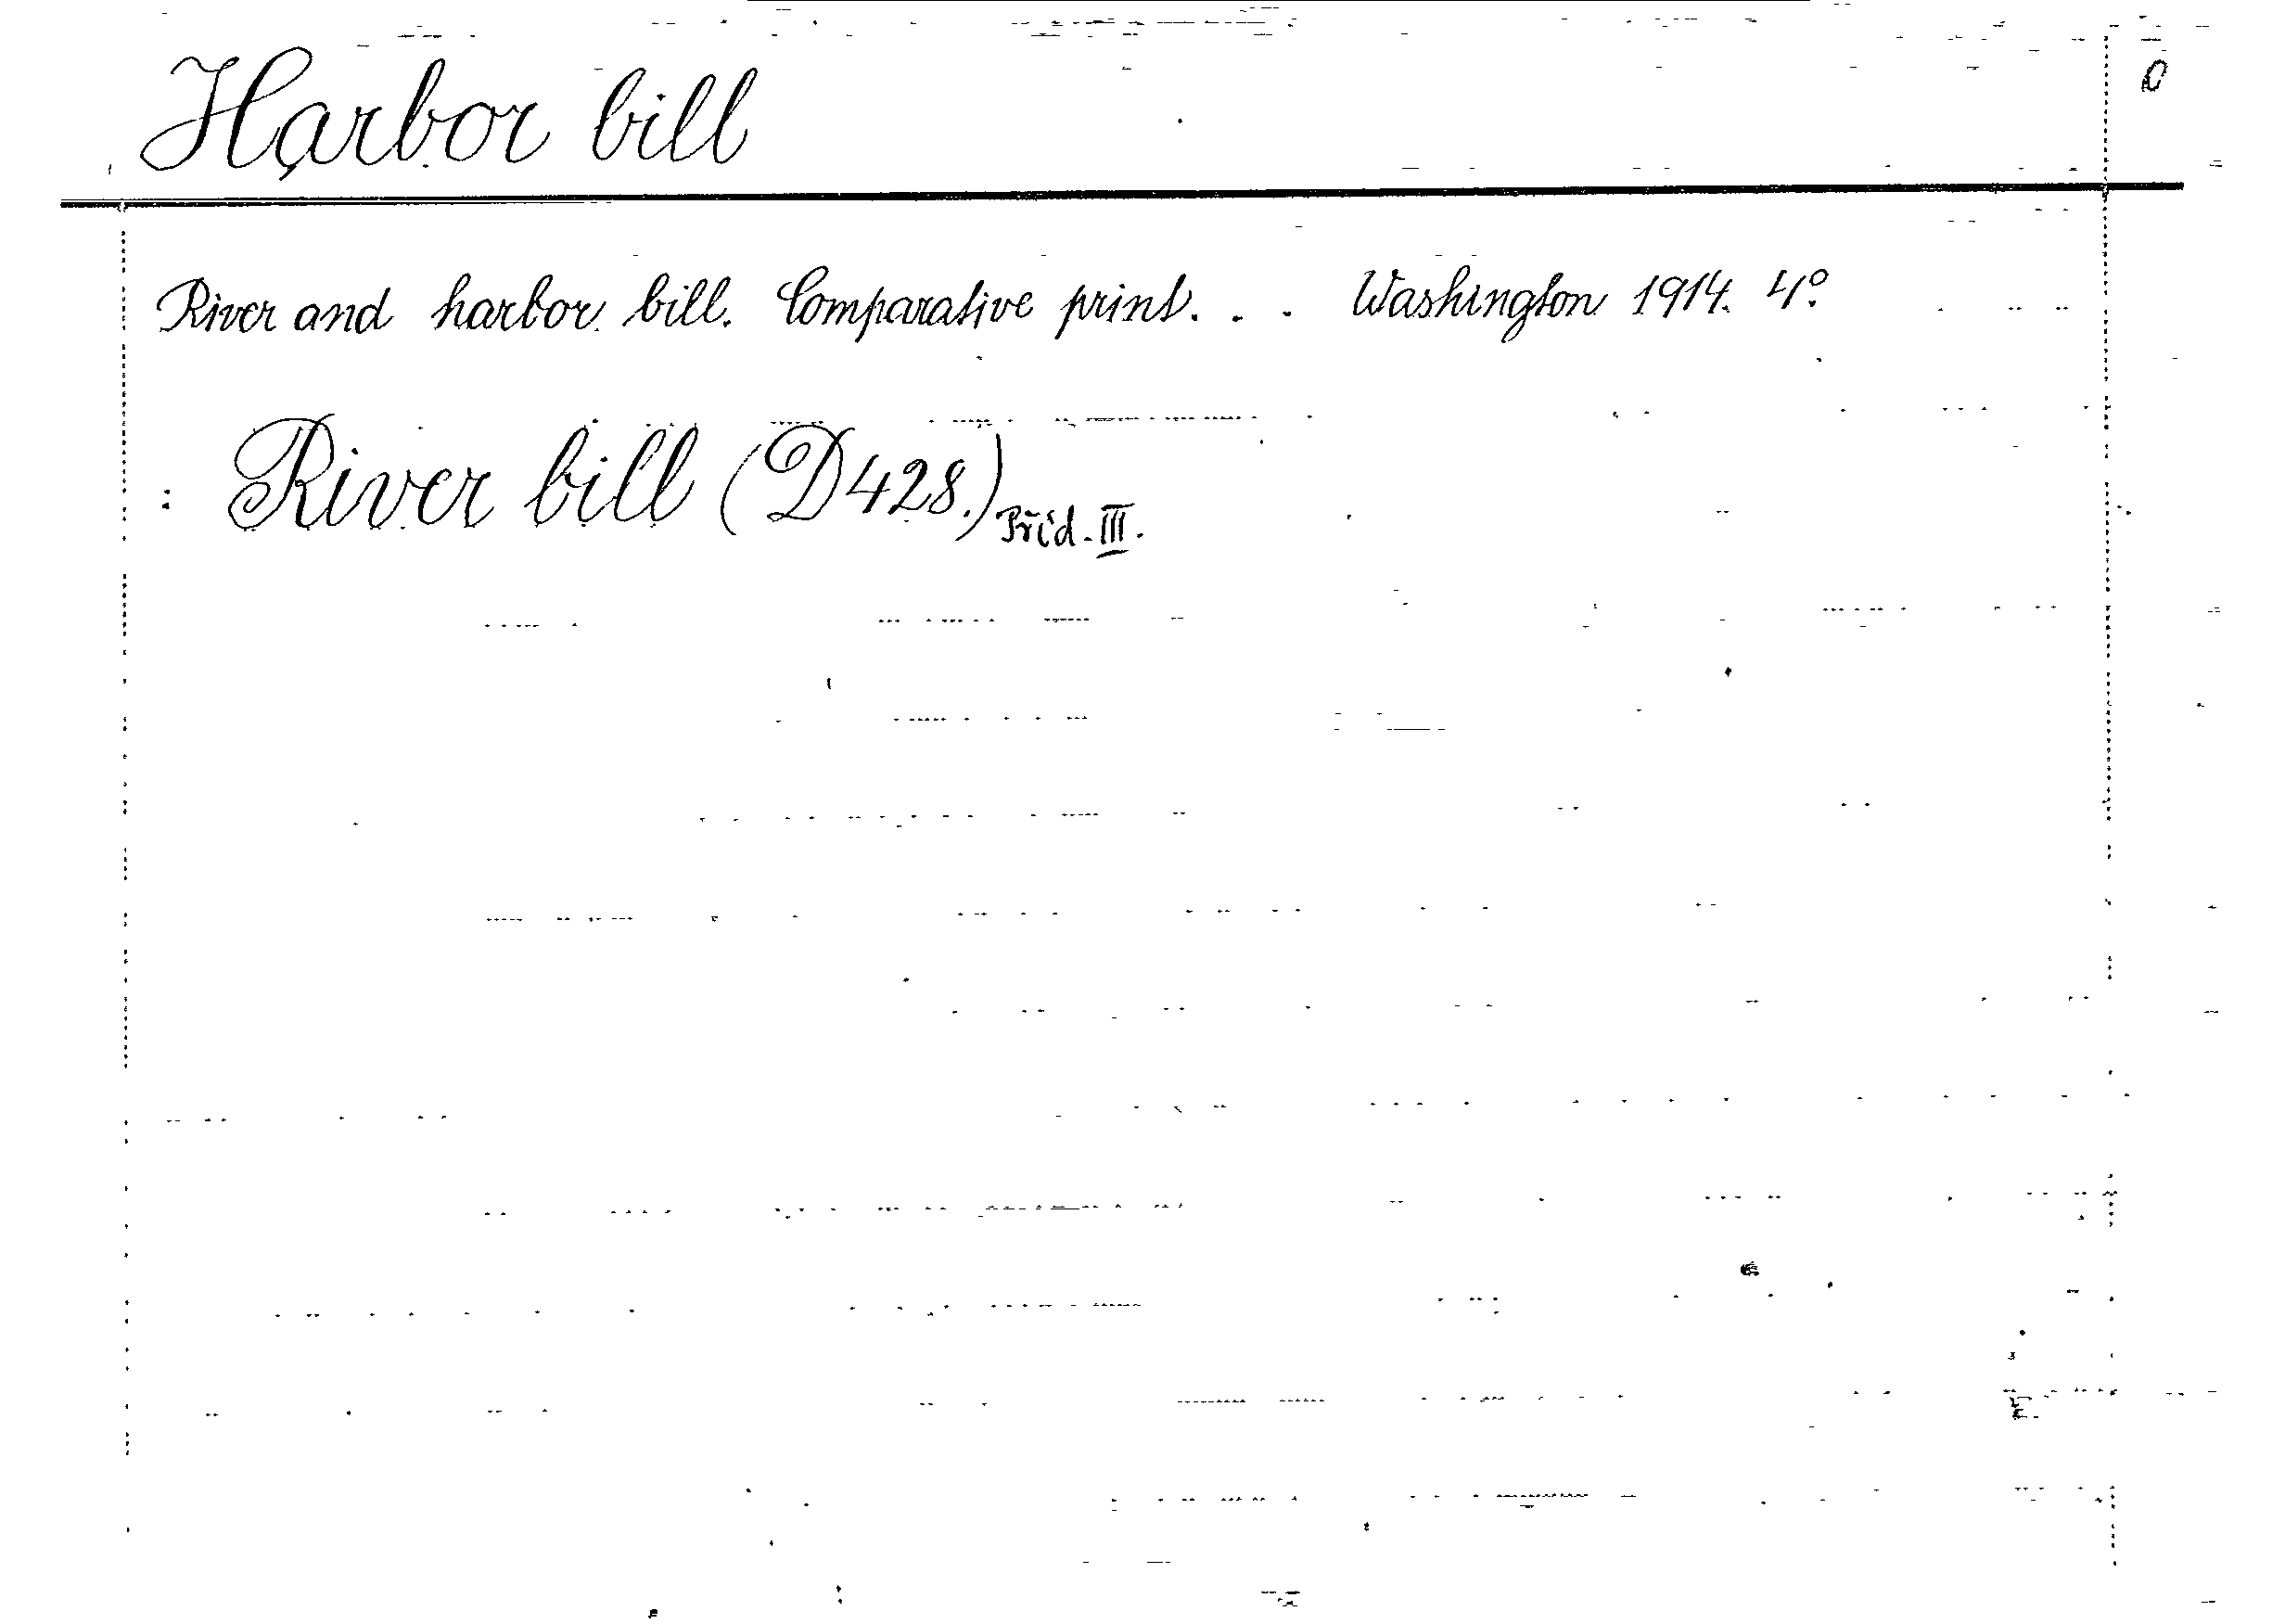 Harbor bill
River and harbor bill. Comparative print. . . Washington 1914. 4º
: River bill (D428.) Příd. III.